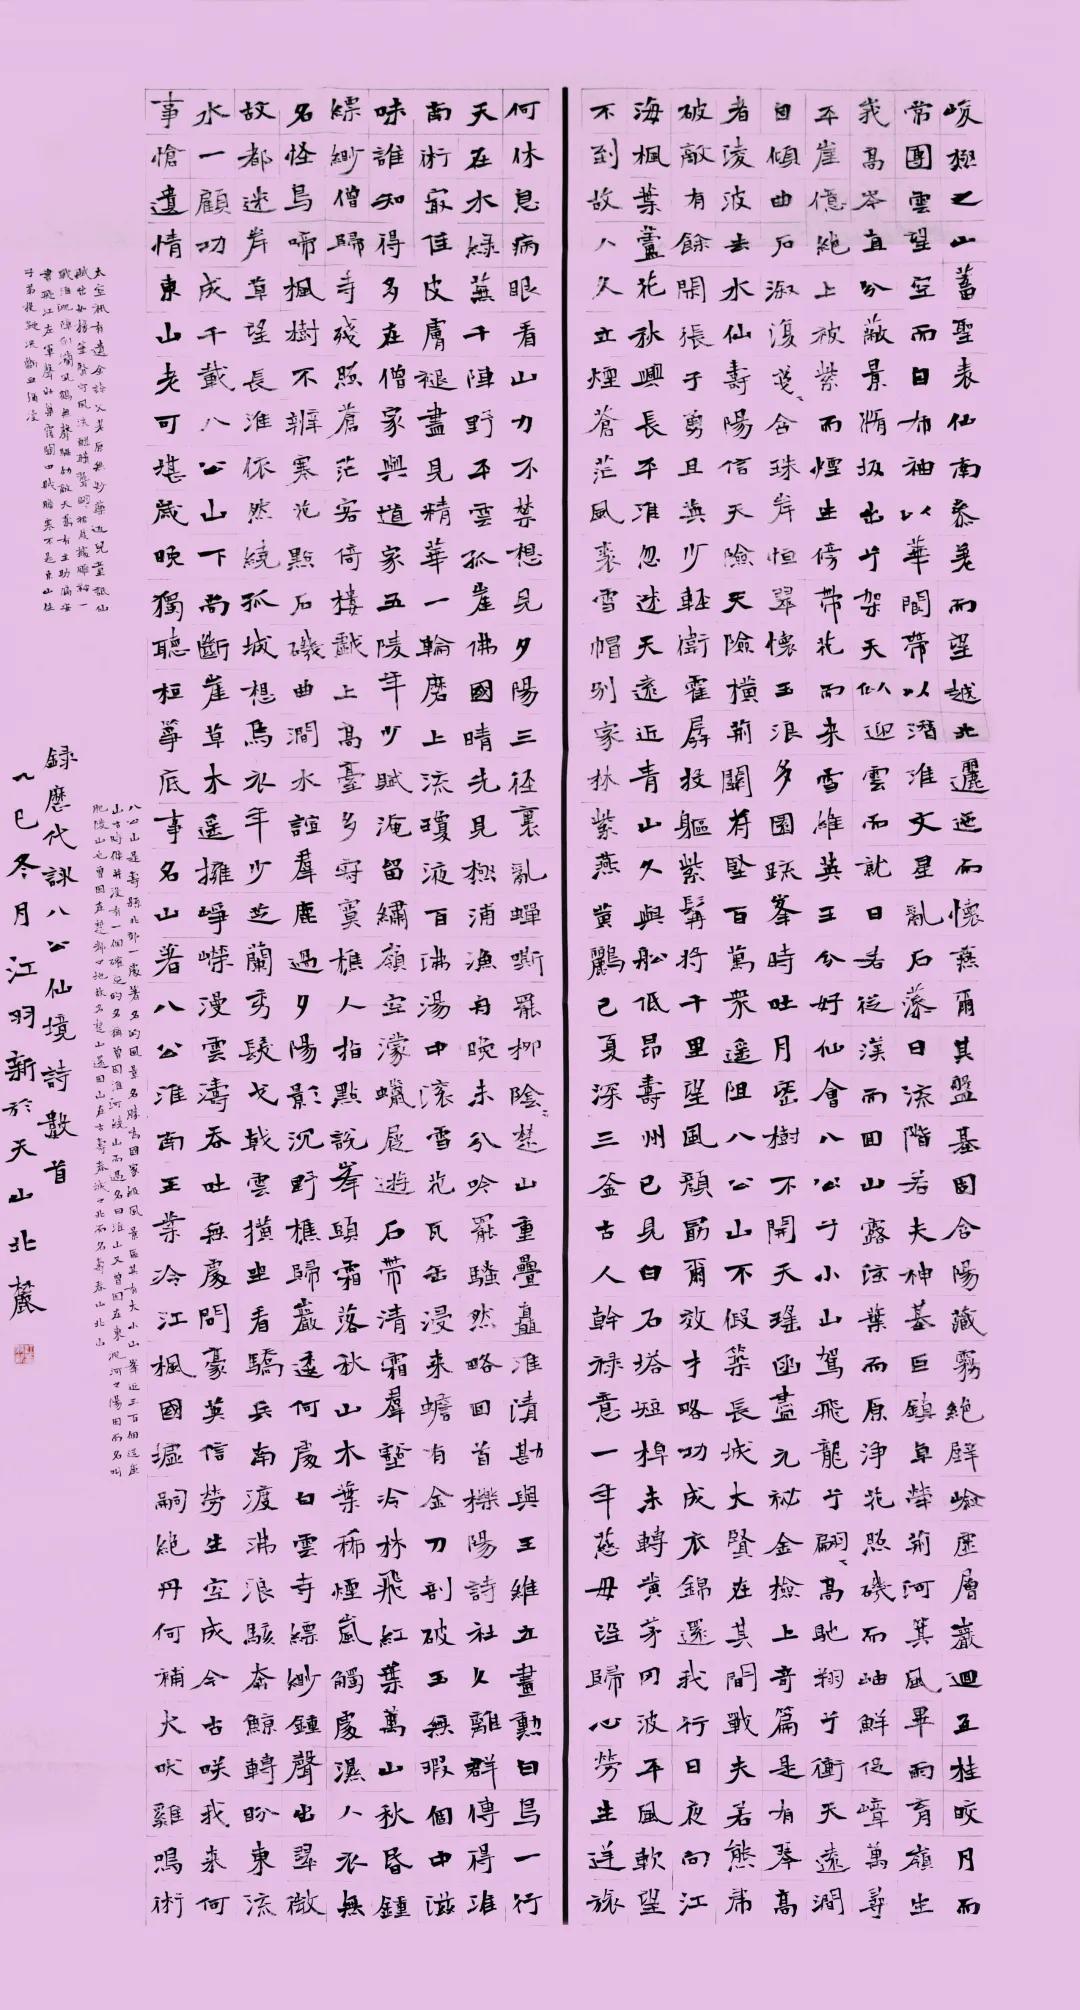 峻極之山蓄聖表仙南叅差而望越北邐迤而懷燕爾其盤基固含陽藏霧絕壁嶮巇層巖迴互桂皎月而
常團雲望空而自布袖以華閬帶以潛淮文星亂石藻日流階若夫神基巨鎮卓犖荊河箕風畢雨育嶺生
峩高岑直兮蔽景脩坂出兮架天似迎雲而就日若從漢而回山露泫葉而原淨花照磯而岫鮮促嶂萬尋
平崖億絕上被紫而煙生傍帶花而來雪維英王兮好仙會八公兮小山駕飛龍兮翩〻高馳翔兮衝天遠澗
自傾曲石淑復戔〻含珠岸恒翠懷玉浪多圓疏峯時吐月密樹不開天瑤函盡元祕金檢上奇篇是有琴高
者淩波去水仙壽陽信天險天險橫荊關苻堅百萬眾遙阻八公山不假築長城大賢在其間戰夫若熊虎
破敵有餘閑張子勇且英少輕衛霍孱投軀紫髯將千里望風顏勗爾效才略功成衣錦還我行日夜向江
海楓葉蘆花秋興長平淮忽迷天遠近青山久與船低昂壽州已見白石塔短棹未轉黃茅岡波平風軟望
不到故人久立煙蒼茫風裘雪帽別家林紫燕黃鸝已夏深三釜古人幹祿意一年慈母望歸心勞生逆旅
何休息病眼看山力不禁想見夕陽三徑裏亂蟬嘶罷柳陰〻楚山重疊矗淮濆勘與王維立畫勳白鳥一行
天在水綠蕪千陣野平雲孤崖佛國晴先見極浦漁舟晚未分吟罷騷然略回首櫟陽詩社久離群傳得淮
南術最佳皮膚褪盡見精華一輪磨上流瓊液百沸湯中滾雪花瓦缶浸來蟾有金刀剖破玉無瑕個中滋
味誰知得多在僧家與道家五陵年少賦淹留繡嶺空濛蠟屐遊石帶清霜羣壑冷林飛紅葉萬山秋昏鍾
縹緲僧歸寺殘照蒼茫客倚樓戲上高臺多寂寞樵人指點說峯頭霜落秋山木葉稀煙嵐觸處濕人衣無
名怪鳥啼楓樹不辨寒花點石磯曲澗水諠羣鹿過夕陽影沉野樵歸巖逺何處白雲寺縹緲鍾聲出翠微
故都迷岸草望長淮依然繞孤城想烏衣年少芝蘭秀發戈戟雲橫坐看驕兵南渡沸浪駭奔鯨轉盼東流
水一顧功成千載八公山下尚斷崖草木遙擁崢嶸漫雲濤吞吐無處問豪英信勞生空成今古咲我來何
事愴遺情東山老可堪歲晚獨聽桓箏底事名山著八公淮南王業冷江楓國墟嗣絕丹何補犬吠雞鳴術
八公山是壽縣北部一處著名的風景名勝為國家級風景區其有大小山峯近三百個這座
山古時候并沒有一個確定的名稱曾因淮河流山而過名曰淮山又曾因在東淝河之陽因而名叫
肥陵山也曾因在楚都之地故名楚山還因山在古壽春城之北而名壽春山北山
録歷代詠八公仙境詩數首
乙巳冬月江羽新於天山北麓